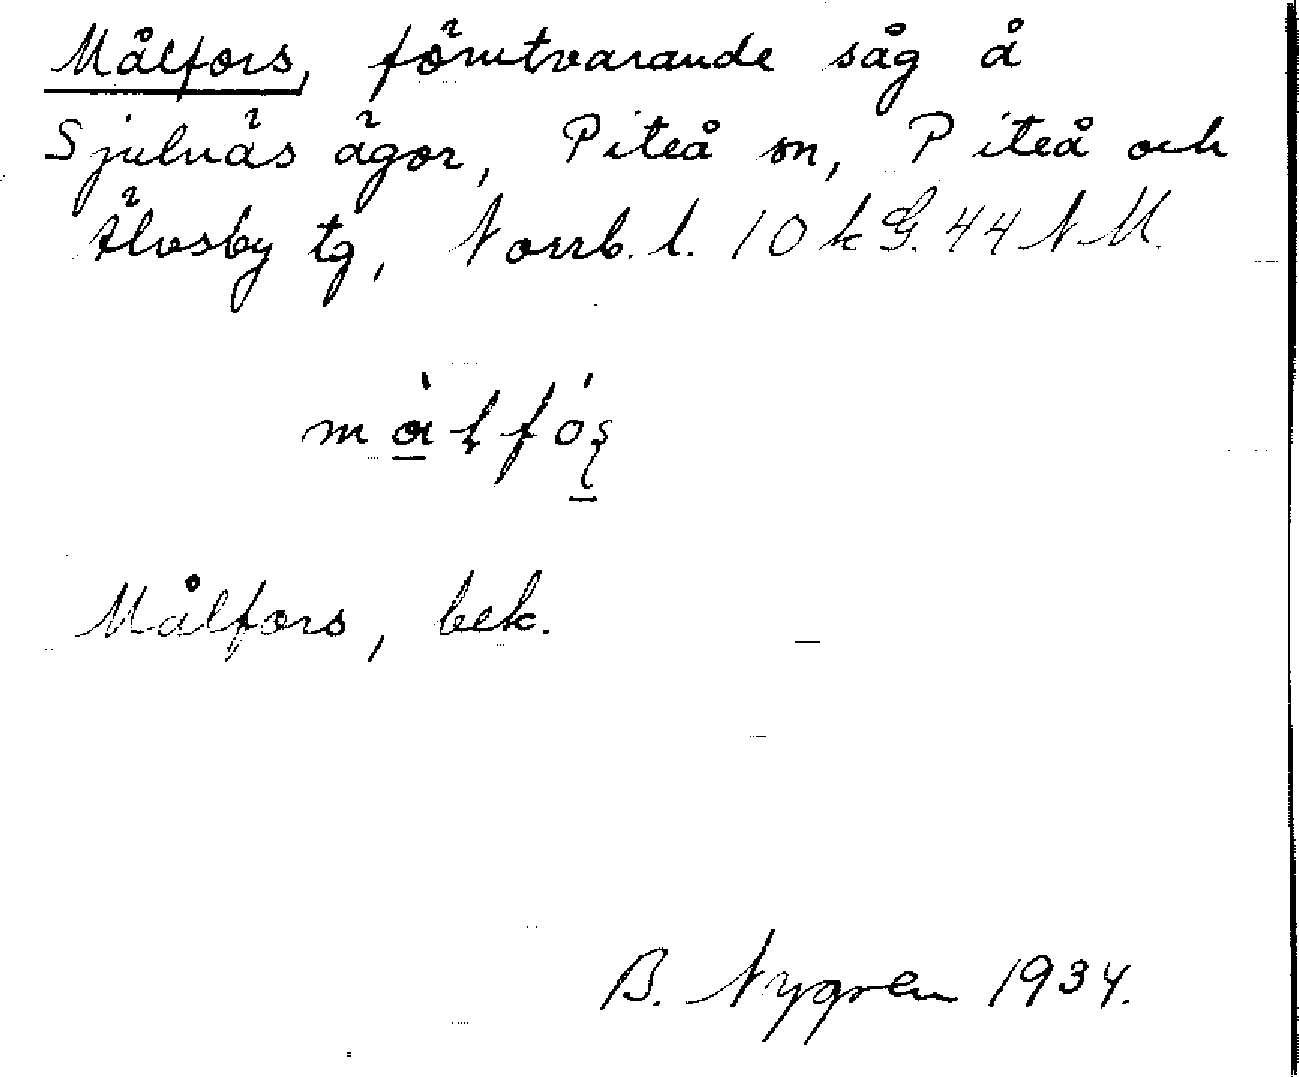 Målfors, förutvarande såg å
Sjulnäs ägor, Piteå sn, Piteå och
Älvsby tg, Norrb. l. 10 k G. 44 N M.
Målfors, bek.
B. Nygren 1934.